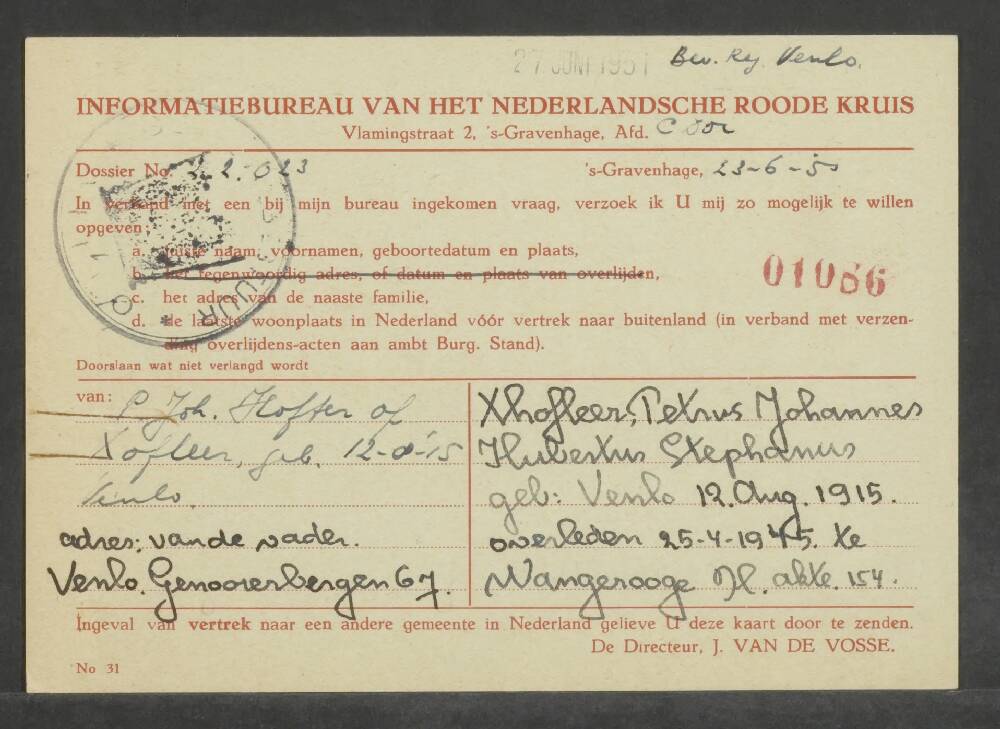 27 JUNI 1951 Bev. Reg. Venlo.
INFORMATIEBUREAU VAN HET NEDERLANDSCHE ROODE KRUIS
Vlamingstraat 2, 's-Gravenhage, Afd.
Dossier No. 's-Gravenhage, 23-6-50
In verband met een bij mijn bureau ingekomen vraag, verzoek ik U mij zo mogelijk te willen
opgeven:
a. juiste naam, voornamen, geboortedatum en plaats,
b. het tegenwoordig adres, of datum en plaats van overlijden,
01086
c. het adres van de naaste familie,
d. de laatste woonplaats in Nederland vóór vertrek naar buitenland (in verband met verzen-
ding overlijdens-acten aan ambt Burg. Stand).
Doorslaan wat niet verlangd wordt
van: P. Joh. Hofter of
Xofleer, geb. 12-8-15
Venlo.
adres: van de vader.
Venlo. Genooierbergen 67.
Xhofleer, Petrus Johannes
Hubertus Stephanus
geb: Venlo 12. Aug. 1915.
overleden 25-4-1945. te
Wangerooge Dl. akte. 154.
Ingeval van vertrek naar een andere gemeente in Nederland gelieve U deze kaart door te zenden.
De Directeur, J. VAN DE VOSSE.
No 31